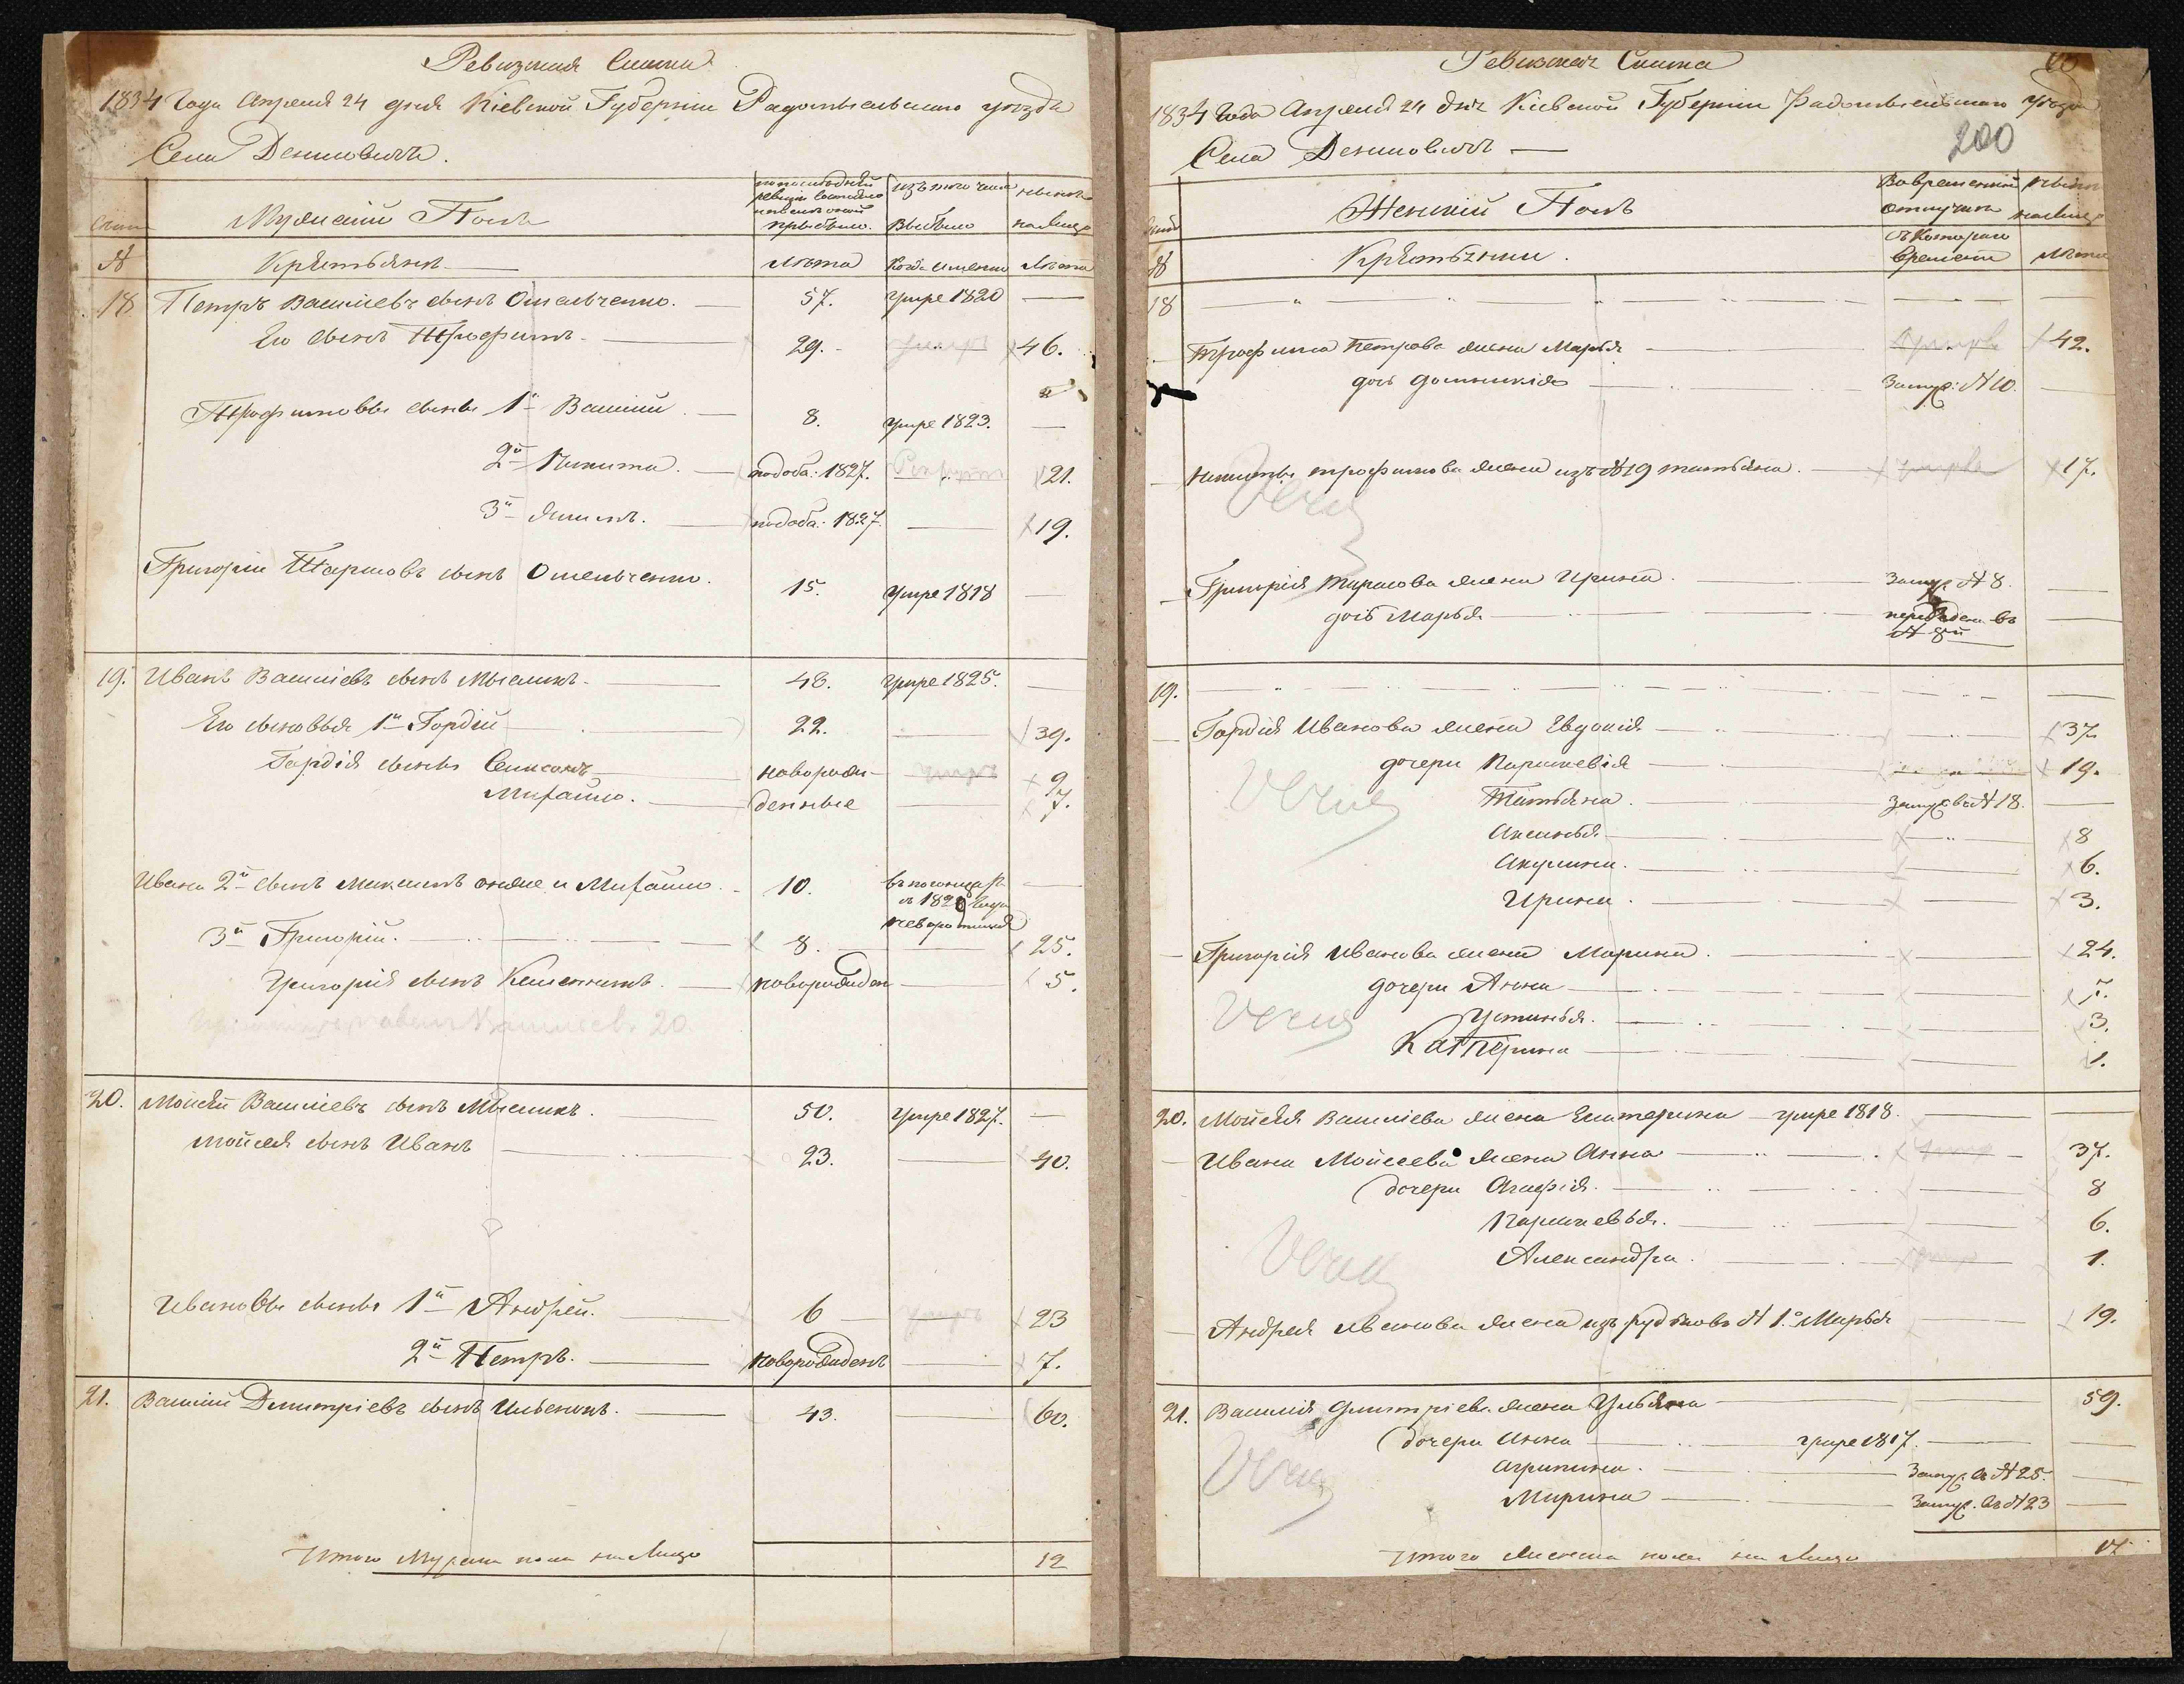 Ревизская Сказка
1834 Года Апреля 24 дня Кіевской Губерніи Радомысльскаго уѣзда
Села Денисовичъ.
Мужескій Полъ
по послѣдней
ревизіи состояло
и послѣ оной
прибыло.
изъ того числа
выбыло
нынѣ
на лицо
№
Крѣстьяне
лѣта
Когда именно
Лѣта
18 Петръ Василіевъ сынъ Омельченко. 57. умре 1820
Его сынъ Трофимъ. 29. 46.
Трофимовы сыны 1й Василій 8. умре 1823.
2й Никита. 1827. 21.
3й Якимъ. 1827. 19.
Григорій Тарасовъ сынъ Омельченко. 15. умре 1818
19. Иванъ Василіевъ сынъ Мысникъ. 48. умре 1825.
Его сыновья 1й Гордій 22. 39.
Гордія сыны Самсонъ новорож- 9
Михайло. денные 7.
Ивана 2й сынъ Максимъ онже и Михайло. 10.
3й Григорій. 8. 25.
Григорія сынъ новорожден 5.
20. Мойсей Василіевъ сынъ Мысникъ. 50. умре 1827.
Мойсея сынъ Иванъ 23. 40.
Ивановы сыны 1й Андрей. 6 умре 23
2й Петръ. новорожденъ 7.
21. Василій Дмитріевъ сынъ Ильенокъ. 43. 60.
Итого Мужеска пола на лицо 12
Ревизская Сказка
1834 Года Апреля 24 дня Кіевской Губерніи Радомысльскаго уѣзда
200
Села Денисовичъ
Женскій Полъ
Во временной
отлучкѣ
нынѣ
на лицо
№
Крѣстьянки.
съ Котораго
времени
лѣта
18
Трофима Петрова жена Марья 42.
дочь Замуж: № 10.
Никиты трофимова жена изъ № 19 татьяна. 17.
Verte
Григорія тарасова жена Ирина. Замуж № 8.
дочь Марья переведена въ
19.
Гордія Иванова жена Евдокія 37
дочери Параскевія 19.
Татьяна. Замуж въ № 18.
Аксинья 8
Акулина. 6.
Ирина. 3.
Verte
Григорія Иванова жена Марина. 24.
дочери Анна
Устинья. 3.
Катерина 1.
Verte
20. Мойсея Василіева жена Екатерина умре 1818.
Ивана Мойсеева жена Анна 37.
дочери Агафія. 8
Параскевья. 6.
Александра. 1.
Verte
Андрея Иванова жена изъ рудьковъ № 1. Марья 19.
21. Василія Дмитріева жена Ульяна 59.
дочери Анна умре 1817.
Агрипина. Замуж. въ № 25.
Марина Замуж. въ № 23
Verte
Итого женска пола на лицо 17